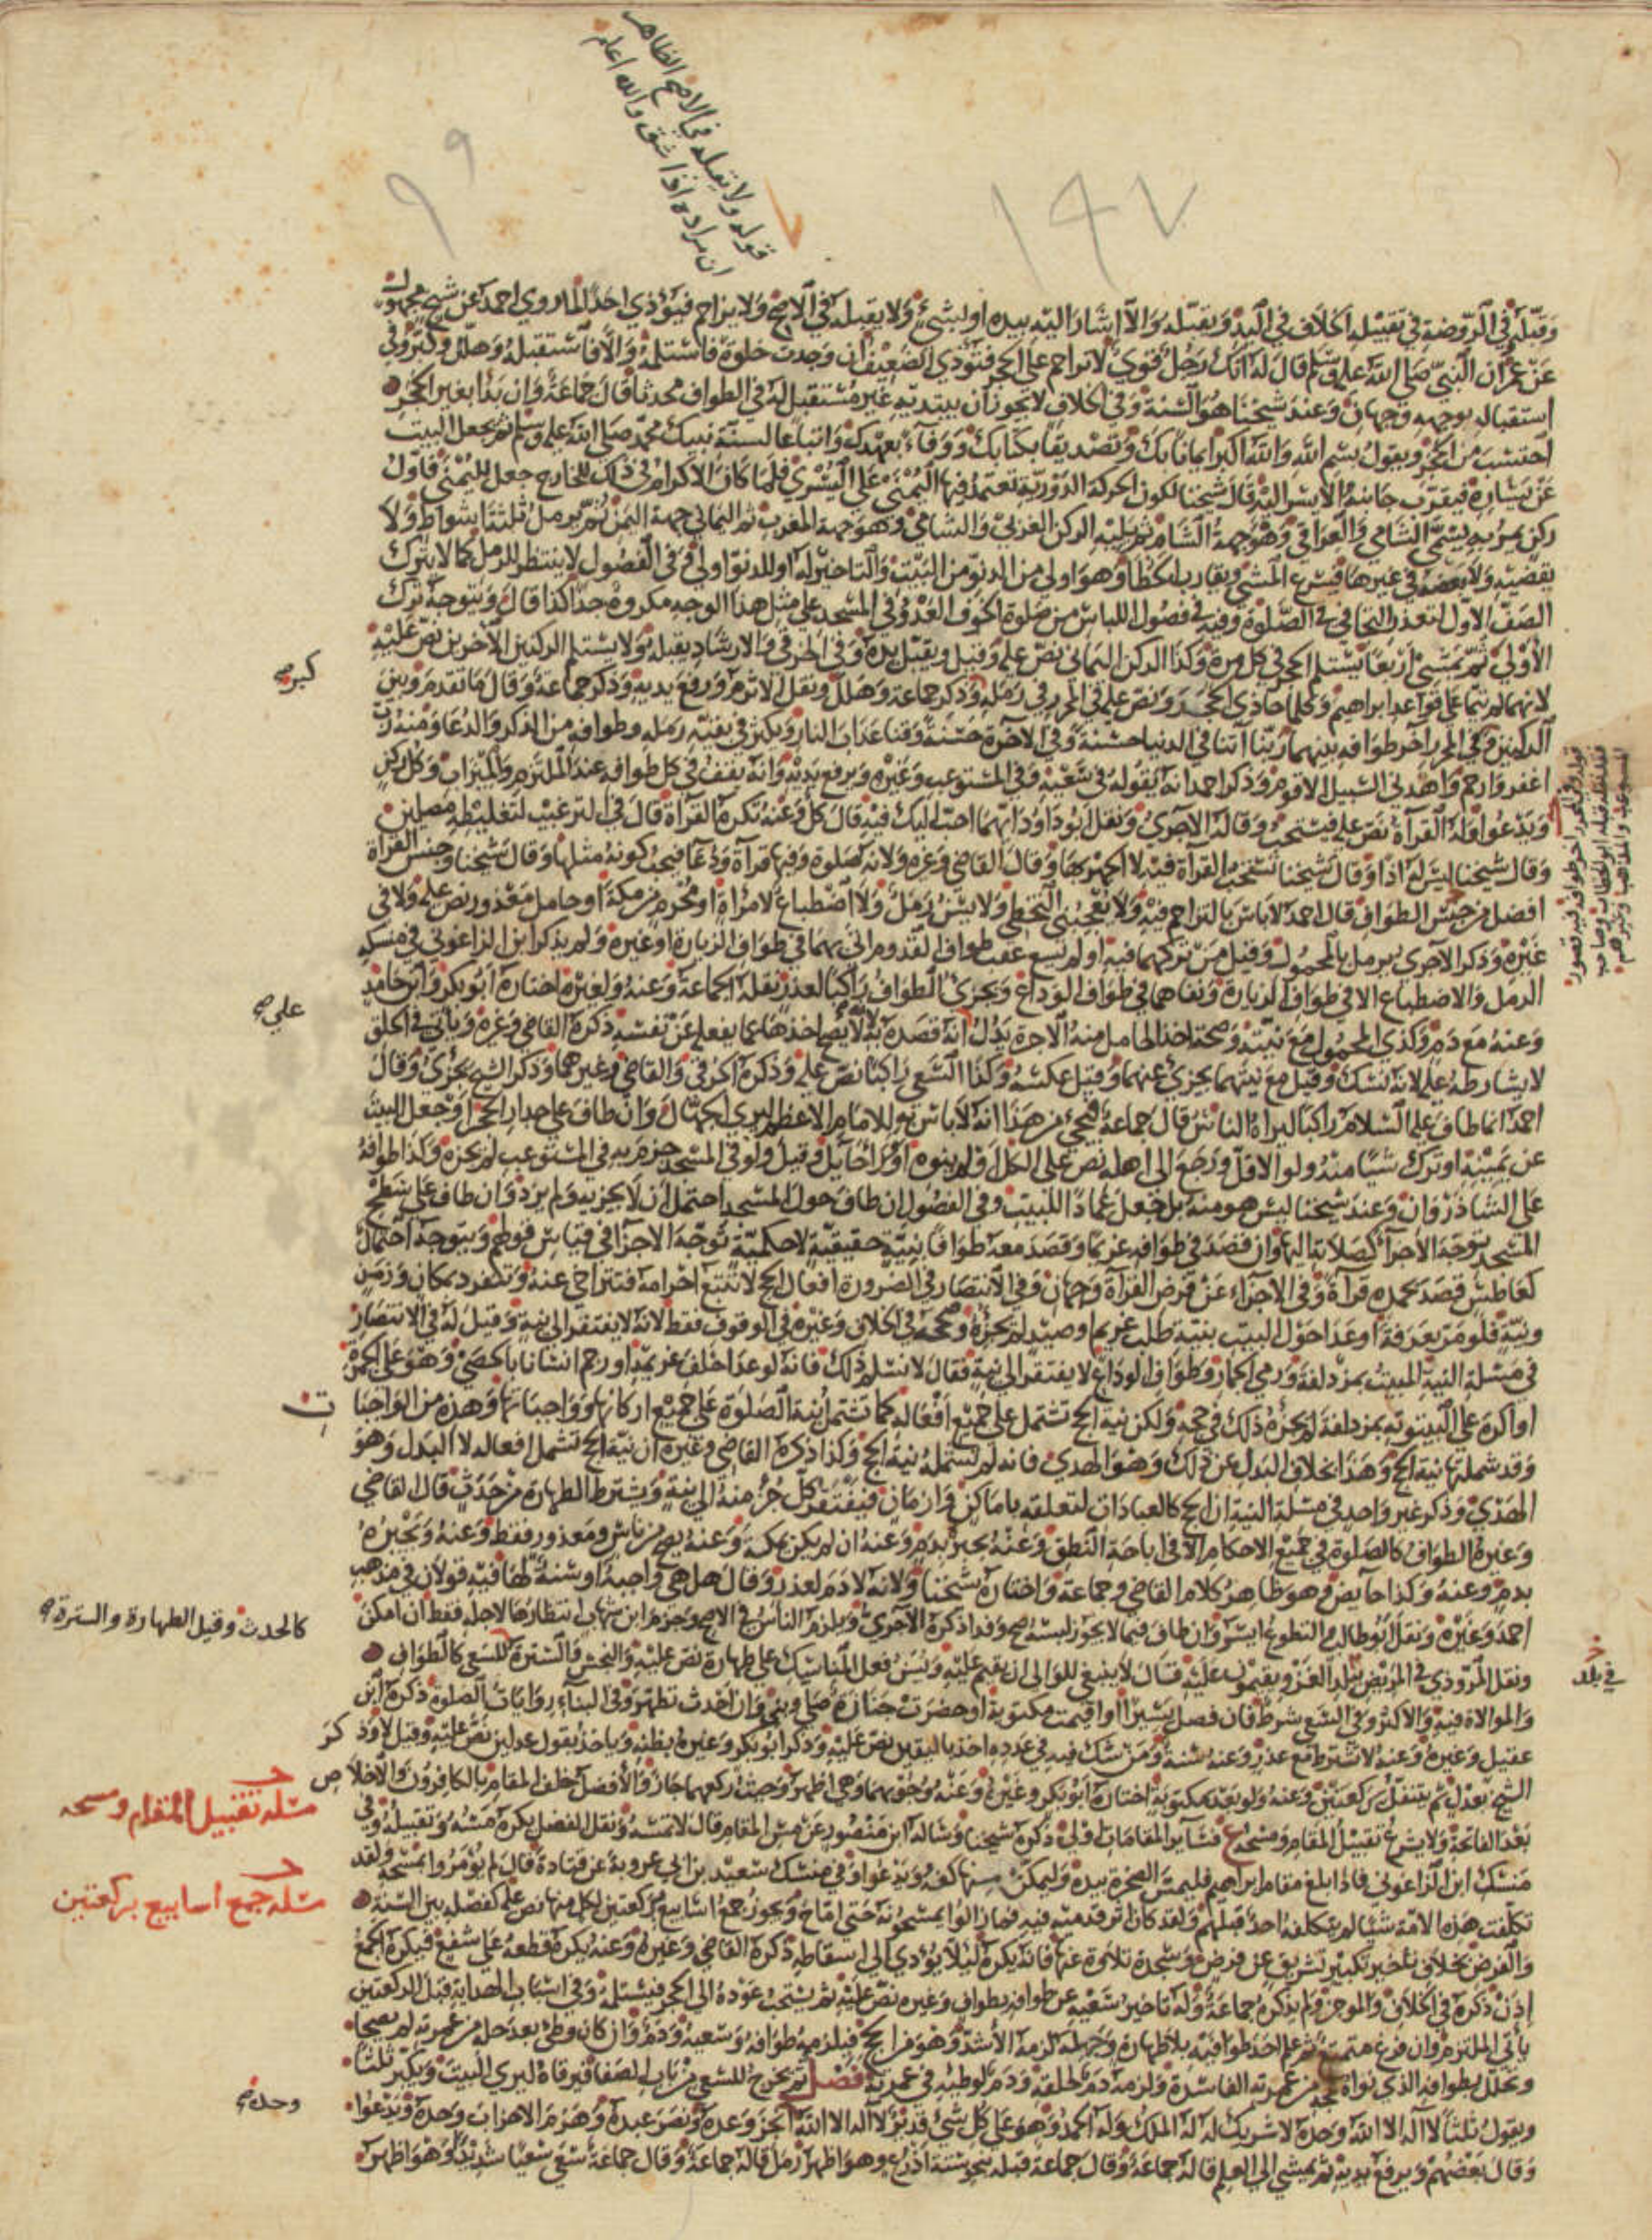 قوله ولا يقبله في الاصح الظاهر
ان مراده اذا شق والله اعلم
٩ ٩
١٤٧
وقيل في الروضة في تقبيله الخلاف في اليد ويقبله والا اشار اليه بيده او بشيء ولا يقبله في الاصح ولا يزاحم فيؤذي احدا لما روى احمد عن شيخ مجهول
عن عمر ان النبي صلى الله عليه وسلم قال له انك رجل قوي لا تزاحم على الحجر فتؤذي الضعيف ان وجدت خلوة فاستلمه والا فاستقبله وهلل وكبر وفي
استقباله بوجهه وجهان وعند شيخنا هو السنة وفي الخلاف لا يجوز ان يبتديه غير مستقبل له في الطواف محدثا قال جماعة وان بدأ بغير الحجر
احتسب من الحجر ويقول بسم الله والله اكبر ايمانا بك وتصديقا بكتابك ووفاء بعهدك واتباعا لسنة نبيك محمد صلى الله عليه وسلم ثم يجعل البيت
عن يساره فيقرب جانبه الايسر اليه قال شيخنا لكون الحركة الدورية تعتمد فيها اليمنى على اليسرى فلما كان الاكرام في ذلك للخارج جعل لليمنى فاول
ركن يمر به يسمى الشامي والعراقي وهو جهة الشام ثم يليه الركن الغربي والشامي وهو جهة المغرب ثم اليماني جهة اليمن ثم يرمل ثلثة اشواط ولا
يقضيه ولا بعضه في غيرها فيسرع المشي ويقارب الخطا وهو اولى من الدنو من البيت والتاخير له او للدنو اولى وفي الفصول لا ينتظر للرمل كما لا يترك
الصف الاول لتعذر التجافي في الصلوة وفيه في فصول اللباس من صلوة الخوف العدو في المسجد على مثل هذا الوجه مكروه جدا كذا قال ويتوجه ترك
الاولى ثم يمشي اربعا يستلم الحجر في كل مرة وكذا الركن اليماني نص عليه وقيل ويقبل يده وفي الخرقي والارشاد يقبله ولا يستلم الركنين الاخرين نص عليه
لانهما لم يتما على قواعد ابراهيم وكلما حاذى الحجر ونص عليه في المحرر في رمله وذكر جماعة وهلل ونقل الاثرم ورفع يديه وذكر جماعة وقال ما تقدم وبين
الركنين وفي المحرر اخر طوافه بينهما ربنا آتنا في الدنيا حسنة وفي الآخرة حسنة وقنا عذاب النار ويكثر في بقية رمله وطوافه من الذكر والدعا ومنه رب
اغفر وارحم واهدني السبيل الاقوم وذكر احمد انه يقوله في سعيه وفي المستوعب وغيره ويرفع يديه وانه يقف في كل طوافه عند الملتزم والميزاب وكل ركن
ويدعو وله القرآة نص عليه فيستحب وقاله الآجري ونقل ابو داود انهما احب اليك فيه قال كل وعنه تكره القرآة قال في الترغيب لتغليطه مصلين
وقال شيخنا ليس له اذا وقال شيخنا تستحب القرآة فيه لا الجهر بها وقال القاضي وغيره ولانه صلوة وفيها قرآة ودعا فيجب كونه مثلها وقال شيخنا وجنس القراة
افضل من جنس الطواف قال احمد لا باس بالتزاحم فيه ولا يعجبني التخطي ولا يسن رمل ولا اضطباع لامراة او محرم من مكة او حامل معذور نص عليه ولا في
غيره وذكر الآجري يرمل بالمحمول وقيل من تركهما فيه او لم يسع عقب طواف القدوم اتى بهما في طواف الزيارة او غيره ولم يذكر ابن الزاغوني في منسكه
الرمل والاضطباع الا في طواف الزيارة ونفاهما في طواف الوداع ويجزئ الطواف راكبا لعذر نقله الجماعة وعنه ولغيره اختاره ابو بكر وابن حامد
وعنه مع دم وكذي المحمول مع نيته وصحة اخذ الحامل منه الاجرة يدل انه قصده به لانه لا يصح اخذها عما يفعله عن نفسه ذكره القاضي وغيره وياتي في الحلق
لا يشارطه عليه لانه نسك وقيل مع نيتهما يجزئ عنهما وقيل عكسه وكذا السعي راكبا نص عليه وذكره الخرقي والقاضي وغيرهما وذكر الشيخ يجزئ وقال
احمد انما طاف عليه السلام راكبا ليراه الناس قال جماعة فيجيء من هذا انه لا باس به للامام الاعظم ليري الجهال وان طاف على جدار الحجر او جعل البيت
عن يمينه او ترك شيئا منه ولو الاقل ورجع الى اهله نص على الكل او لم ينوه او ورا حائل وقيل ولو في المسجد جزم به في المستوعب لم يجزه وكذا طوافه
على الشاذروان وعند شيخنا ليس هو منه بل جعل عمادا للبيت وفي الفصول ان طاف حول المسجد احتمل ان لا يجزيه ولم يزد وان طاف على سطح
المسجد توجه الاجزاء كصلاته اليها وان قصد في طوافه غريما وقصد معه طوافا بنية حقيقية لا حكمية توجه الاجزا في قياس قولهم ويتوجه احتمال
كعاطس قصد بحمده قرآة وفي الاجزاء عن فرض القرآة وجهان وفي الانتصار في الضرورة افعال الحج لا تتبع احرامه فتتراخى عنه وتنفرد بمكان وزمن
ونية فلو مر بعرفة او عدا حول البيت بنية طلب غريم او صيد لم يجزه وصححه في الخلاف وغيره في الوقوف فقط لانه لا يفتقر الى نية وقيل له في الانتصار
في مسئلة النية المبيت بمزدلفة ورمي الجمار وطواف الوداع لا يفتقر الى نية فقال لا نسلم ذلك فانه لو عدا خلف غريمه او رجم انسانا بالحصى وهو على الجمرة
او اكره على البيتوتة بمزدلفة لم يجزه ذلك في حجه ولكن نية الحج تشتمل على جميع افعاله كما تشتمل نية الصلوة على جميع اركانها وواجباتها وهذه من الواجبات
وقد شملها نية الحج وهذا بخلاف البدل عن ذلك وهو الهدي فانه لم تشتمله نية الحج وكذا ذكره القاضي وغيره ان نية الحج تشمل افعاله لا البدل وهو
الهدي وذكر غير واحد في مسئلة النية ان الحج كالعبادات لتعلقه باماكن وازمان فيفتقر كل جزء منه الى نية ويشترط الطهارة من حدث قال القاضي
وغيره الطواف كالصلوة في جميع الاحكام الا في اباحة النطق وعنه يجبره بدم وعنه ان لم يكن بمكة وعنه يصح من ناس ومعذور فقط وعنه ويجبره
بدم وعنه وكذا حائض وهو ظاهر كلام القاضي وجماعة واختاره شيخنا وانه لا دم لعذر وقال هل هي واجبة او سنة لها فيه قولان في مذهب
احمد وغيره ونقل ابو طالب والتطوع ايسر وان طاف فيما لا يجوز لبسه صح وفدا ذكره الآجري ويلزم الناس في الاصح وجزم ابن شهاب انتظارها لاجله فقط ان امكن
ونقل المروذي في المريض ببلد الغزو ويقيمون عليه قال لا ينبغي للوالي ان يقيم عليه ويسن فعل المناسك على طهارة نص عليه والنجس والسترة للسعي كالطواف
والموالاة فيه والاكثر وفي السعي شرط فان فصل يسيرا او اقيمت مكتوبة او حضرت جنازة صلى وبنى وان احدث تطهر وفي البناء روايات الصلوة ذكره ابن
عقيل وغيره وعنه لا تشترط مع عذر وعنه سنة ومن شك فيه في عدده اخذ باليقين نص عليه وذكر ابو بكر وغيره بظنه وياخذ بقول عدلين نص عليه وقيل لا وذكر
الشيخ بعدل ثم يتنفل بركعتين وعنه ولو بعد مكتوبة اختاره ابو بكر وغيره وعنه وجوبهما وهي اظهر وحيث ركعهما جاز والافضل خلف المقام بالكافرون والاخلاص
بعد الفاتحة ولا يشرع تقبيل المقام ومسحه فسائر المقامات اولى ذكره شيخنا وساله ابن منصور عن مس المقام قال لا تمسه ونقل الفضل يكره مسه وتقبيله وفي
منسك ابن الزاغوني فاذا بلغ مقام ابراهيم فليمس الصخرة بيده وليمكن منها كفه ويدعو وفي منسك سعيد بن ابي عروبة عن قتادة قال لم يؤمروا بمسحه ولقد
تكلفت هذه الامة شيئا لم يتكلفه احد قبلهم ولقد كان اثر قدميه فيه فما زالوا يمسحونه حتى اماح ويجوز جمع اسابيع بركعتين لكل منها نص عليه كفصله بين السنة
والفرض بخلاف تاخير تكبير تشريق عن فرض وسجدة تلاوة عنها فانه يكره ليلا يؤدي الى اسقاطه ذكره القاضي وغيره وعنه يكره قطعه على شفع فيكره الجمع
اذن ذكره في الخلاف والموجز ولم يذكره جماعة وله تاخير سعيه عن طوافه بطواف وغيره نص عليه ثم يستحب عوده الى الحجر فيستلمه وفي اسباب الهداية قبل الركعتين
ياتي الملتزم وان فرغ متمتع ثم علم احد طوافيه بلا طهارة وجهله لزمه الاشد وهو من الحج فيلزمه طوافه وسعيه ودم وان كان وطئ بعد حله من عمرته لم يصحا
وتحلل بطوافه الذي نواه لحجه من عمرته الفاسدة ولزمه دم لحلقه ودم لوطئه في عمرته فصل ثم يخرج للسعي من باب الصفا فيرقاه ليرى البيت ويكبر ثلثا
ويقول ثلثا لا اله الا الله وحده لا شريك له له الملك وله الحمد وهو على كل شيء قدير لا اله الا الله انجز وعده ونصر عبده وهزم الاحزاب وحده ويدعوا
وقال بعضهم ويرفع يديه ثم يمشي الى العلم قاله جماعة وقال جماعة قبله بنحو ستة اذرع وهو اظهر رمل قاله جماعة وقال جماعة سعى سعيا شديدا وهو اظهر
كبر صح
علي صح
ت
كالحدث وقيل الطهارة والسترة صح
مسئلة تقبيل المقام ومسحه
مسئلة جمع أسابيع بركعتين
وحده صح
قوله وفي المحرر اخر طوافه فيه قصور
فقد نقله قبله ابو الخطاب وصاحب
المستوعب والمذهب وغيرهم
خ
في بلد